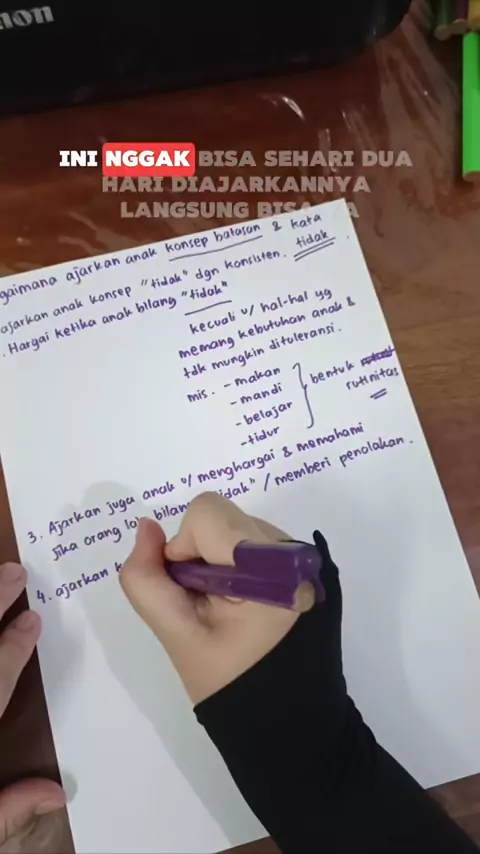 non
INI NGGAK BISA SEHARI DUA
HARI DIAJARKANNYA
LANGSUNG BISA
gaimana ajarkan anak konsep batasan & kata
tidak.
ajarkan anak konsep "tidak" dgn konsisten.
. Hargai ketika anak bilang "tidak"
kecuali u/ hal-hal yg
memang kebutuhan anak &
tdk mungkin ditoleransi.
mis. - makan
- mandi
- belajar
- tidur
bentuk
rutinitas
3. Ajarkan juga anak u/ menghargai & memahami
jika orang lain bilang "tidak" / memberi penolakan.
4. ajarkan